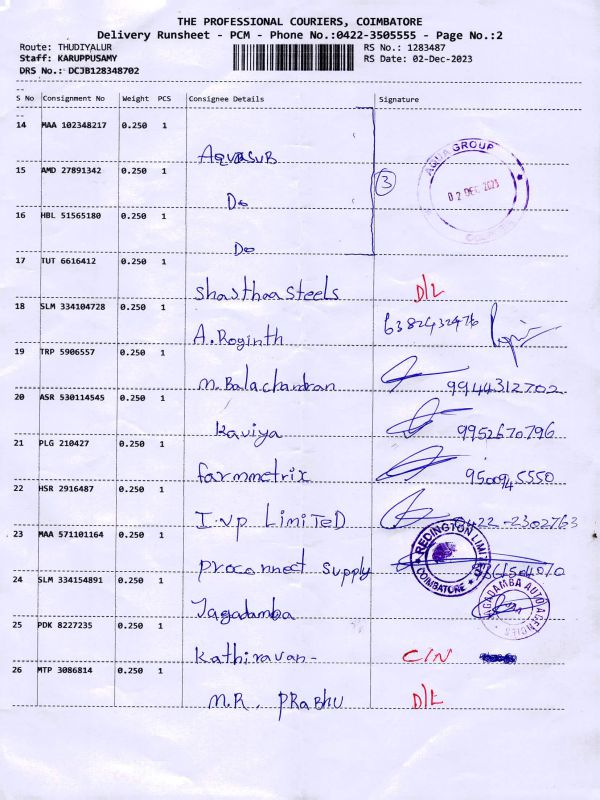 THE PROFESSIONAL COURIERS, COIMBATORE
Delivery Runsheet - PCM - Phone No.:0422-3505555 - Page No.:2
Route: THUDIYALUR RS No.: 1283487
Staff: KARUPPUSAMY RS Date: 02-Dec-2023
DRS No.: DCJB128348702
S No Consignment No Weight PCS Consignee Details Signature
14 MAA 102348217 0.250 1
Aquasub
15 AMD 27891342 0.250 1
Do
3
AQUA GROUP
02 DEC 2023
16 HBL 51565180 0.250 1
Do
17 TUT 6616412 0.250 1
Shasthaa steels D/L
18 SLM 334104728 0.250 1
A. Roginth 6382432476
19 TRP 5906557 0.250 1
M. Balachandran 9944312702
20 ASR 530114545 0.250 1
Kaviya 9952670796
21 PLG 210427 0.250 1
farmmetrix 9500945550
22 HSR 2916487 0.250 1
I.vp LimiTeD 0422-2302763
23 MAA 571101164 0.250 1
proconnect supply
REDINGTON LIMITED
COIMBATORE
24 SLM 334154891 0.250 1
Jagadamba
JAGADAMBA AUTO AGENCIES
25 PDK 8227235 0.250 1
Kathiravan- C/N
26 MTP 3086814 0.250 1
M.R. PRabhu D/L